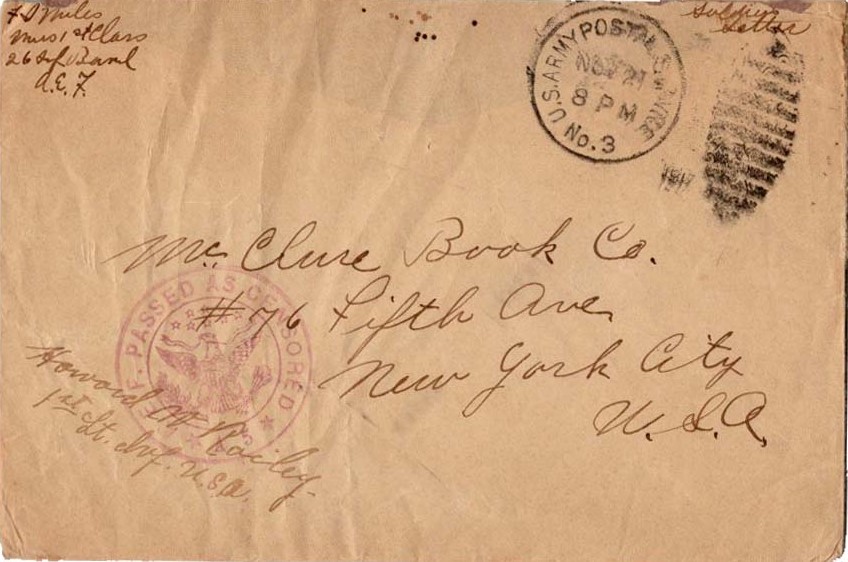 F S Miles
Mus 1st Class
26 Inf Band
A.E.F.
Soldier's
Letter
U.S. ARMY POSTAL SERVICE
NOV 21
8 PM
No. 3
1917
Mc Clure Book Co.
#76 Fifth Ave
New York City
U.S.A.
PASSED AS CENSORED
Howard W Railey
1st Lt. Inf. U.S.A.